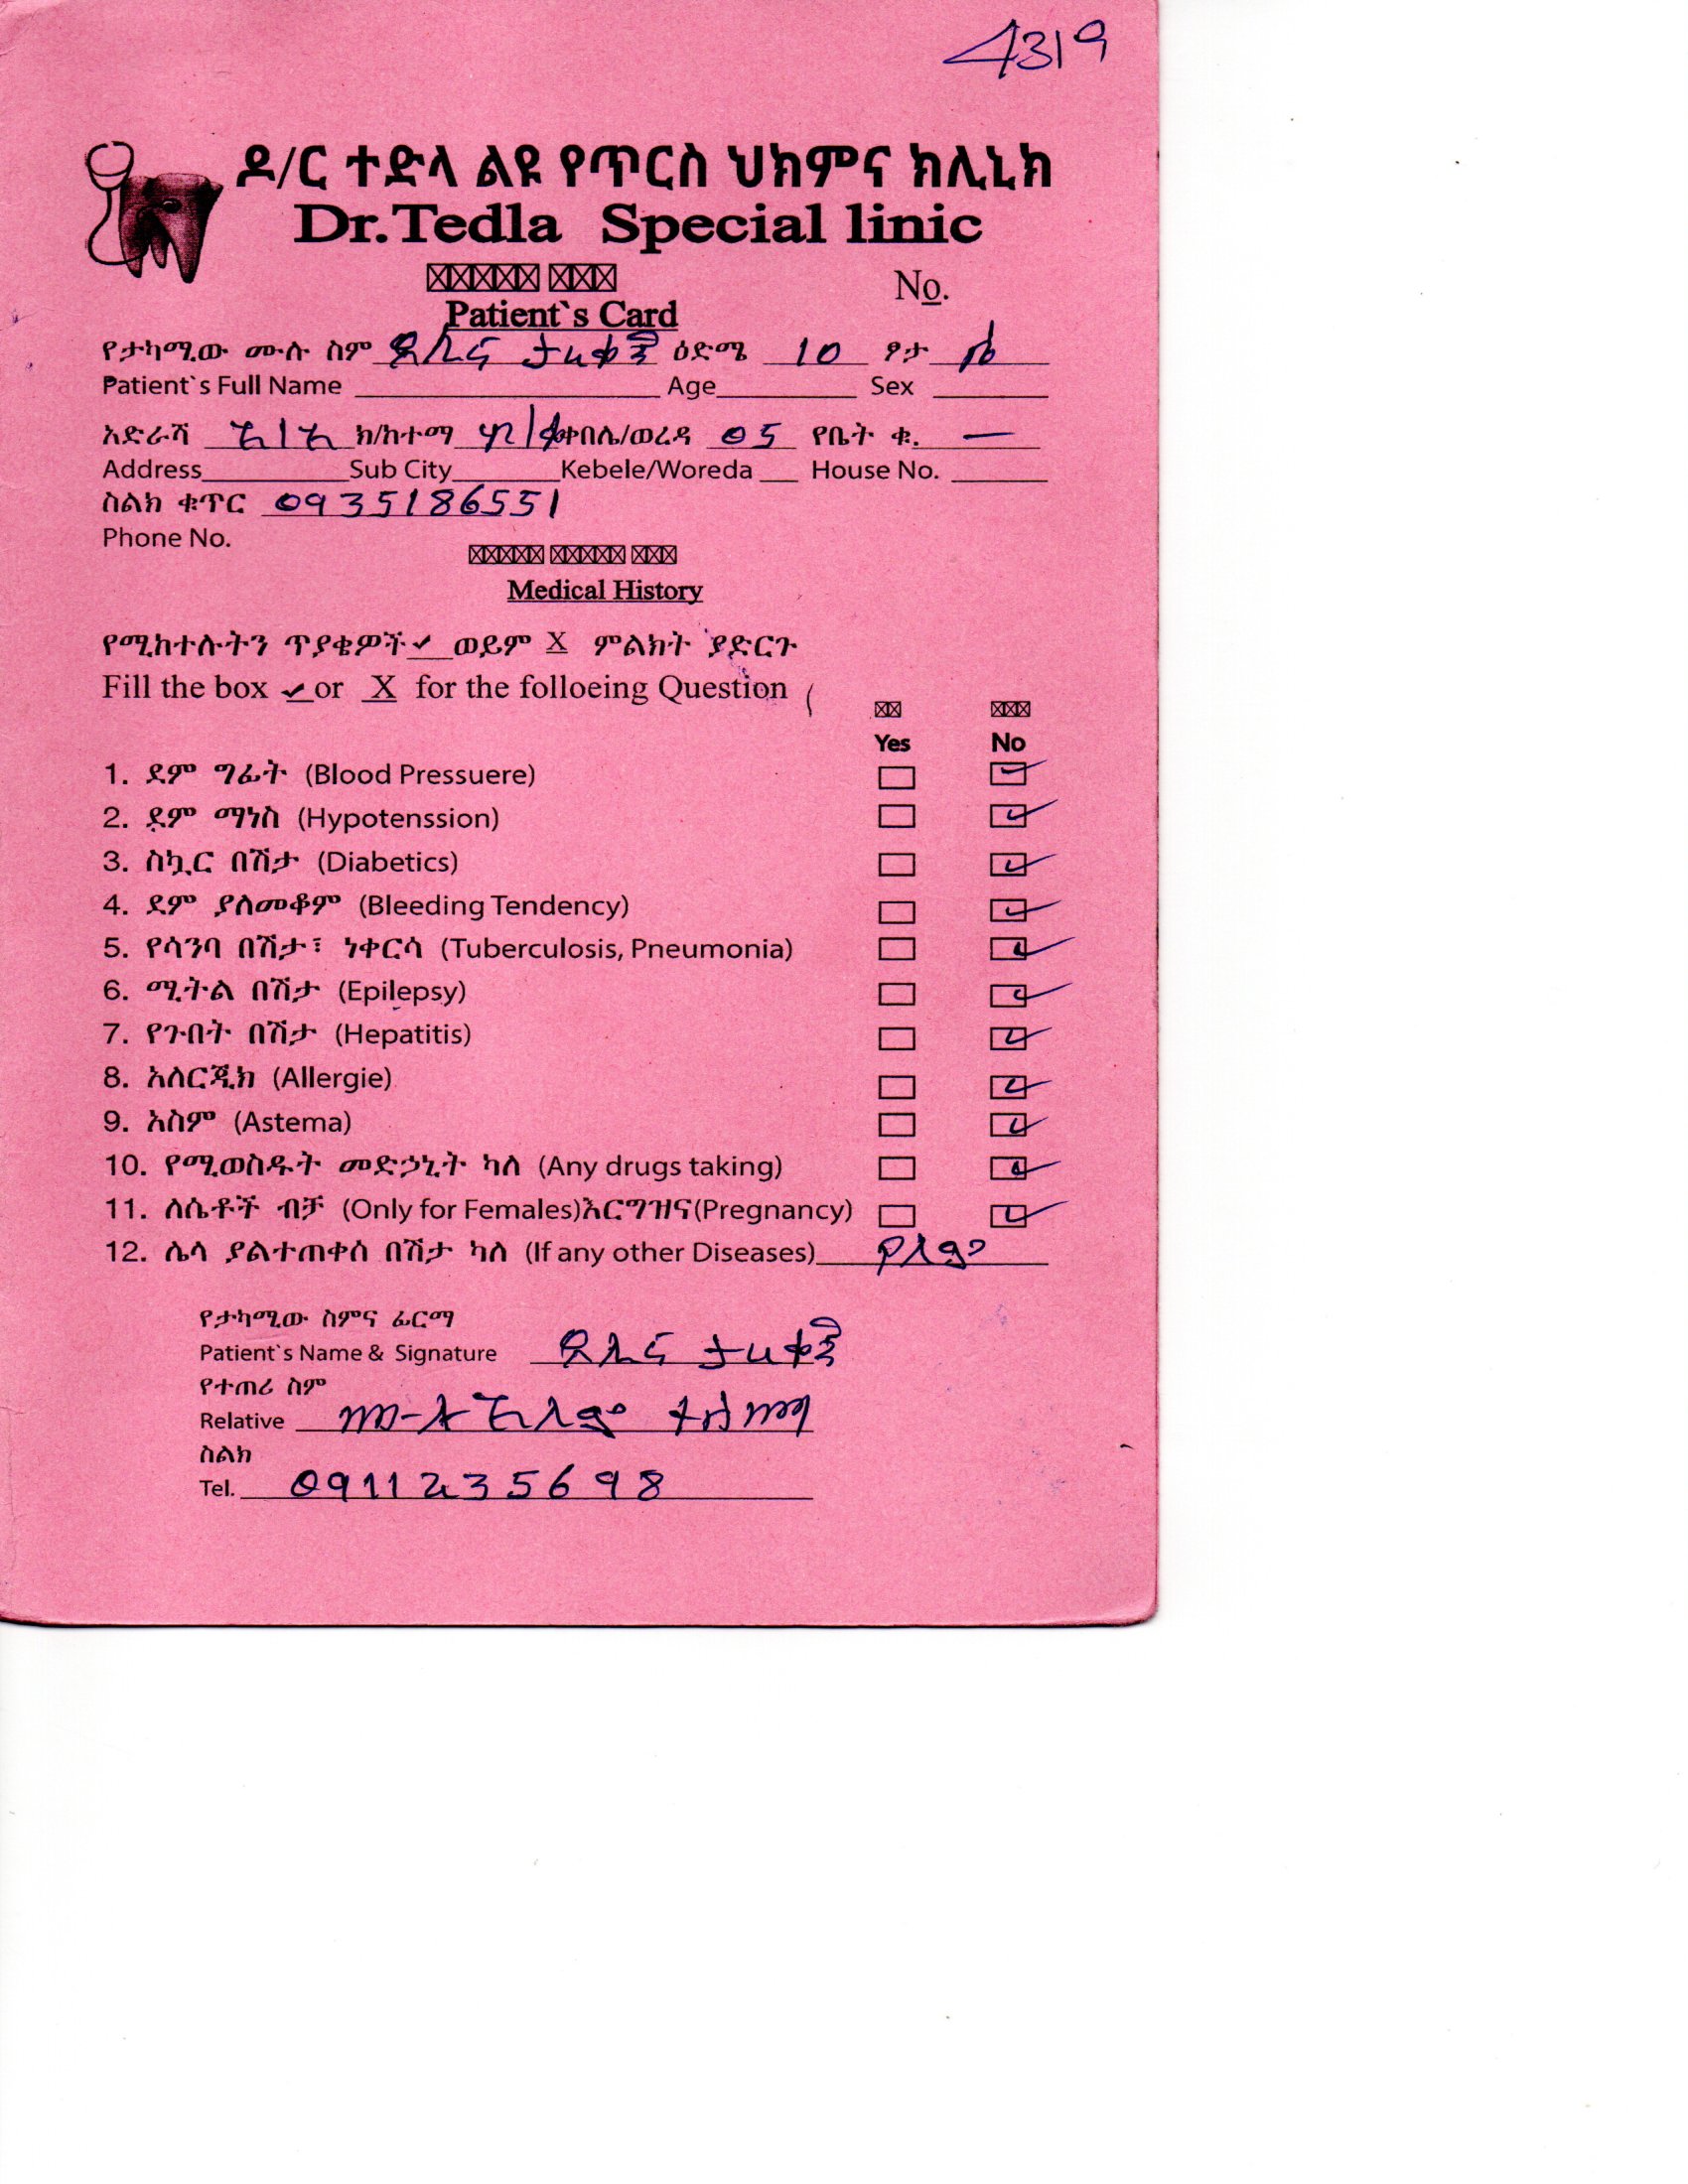 4319
ዶ/ር ተድላ ልዩ የጥርስ ህክምና ክሊኒክ
Dr.Tedla Special linic
No.
Patient`s Card
የታካሚው ሙሉ ስም ዕድሜ 10 ፆታ ሴ
Patient`s Full Name Age Sex
አድራሻ አ/አ ክ/ከተማ ቀበሌ/ወረዳ 05 የቤት ቁ. —
Address Sub City Kebele/Woreda House No.
ስልክ ቁጥር 0935186551
Phone No.
Medical History
የሚከተሉትን ጥያቄዎች ✓ ወይም X ምልክት ያድርጉ
Fill the box ✓ or X for the folloeing Question
Yes No
1. ደም ግፊት (Blood Pressuere) ✓
2. ደም ማነስ (Hypotenssion) ✓
3. ስኳር በሽታ (Diabetics) ✓
4. ደም ያለመቆም (Bleeding Tendency) ✓
5. የሳንባ በሽታ፣ ነቀርሳ (Tuberculosis, Pneumonia) ✓
6. ሚትል በሽታ (Epilepsy) ✓
7. የጉበት በሽታ (Hepatitis) ✓
8. አለርጂክ (Allergie) ✓
9. አስም (Astema) ✓
10. የሚወስዱት መድኃኒት ካለ (Any drugs taking) ✓
11. ለሴቶች ብቻ (Only for Females)እርግዝና(Pregnancy) ✓
12. ሌላ ያልተጠቀሰ በሽታ ካለ (If any other Diseases) የለም
የታካሚው ስምና ፊርማ
Patient`s Name & Signature
የተጠሪ ስም
Relative
ስልክ
Tel. 0911235698